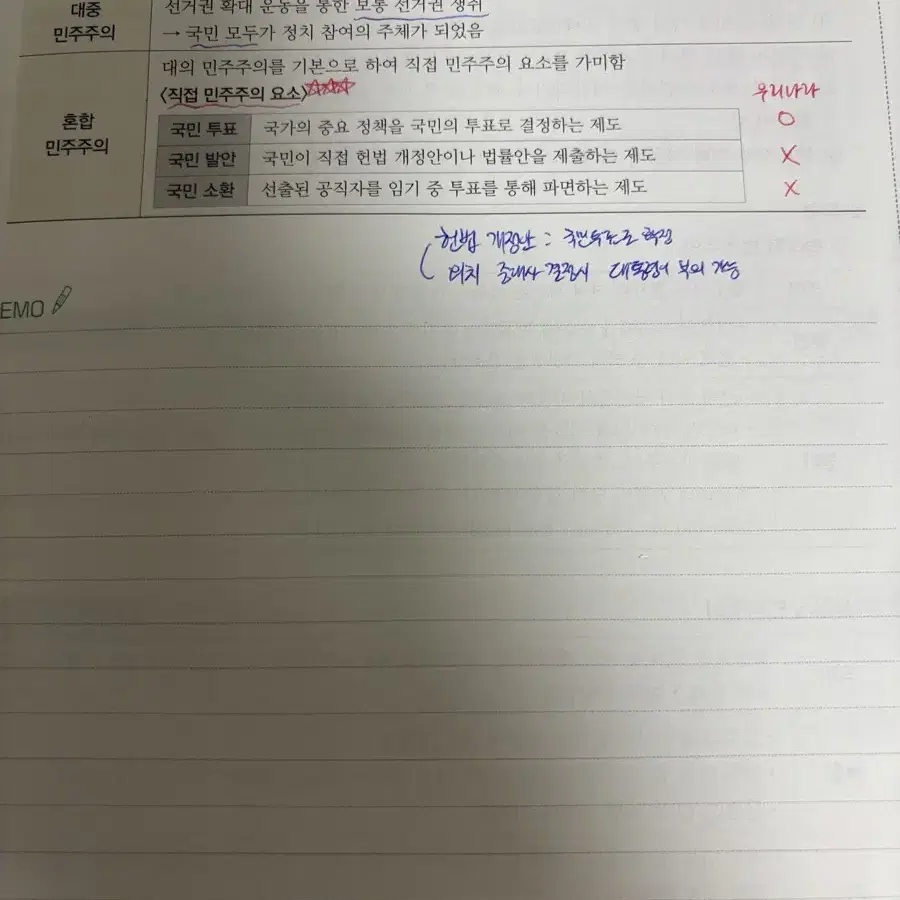 대중
민주주의
선거권 확대 운동을 통한 보통 선거권 쟁취
→ 국민 모두가 정치 참여의 주체가 되었음
혼합
민주주의
대의 민주주의를 기본으로 하여 직접 민주주의 요소를 가미함
<직접 민주주의 요소>☆☆☆
우리나라
국민 투표 국가의 중요 정책을 국민의 투표로 결정하는 제도 O
국민 발안 국민이 직접 헌법 개정안이나 법률안을 제출하는 제도 X
국민 소환 선출된 공직자를 임기 중 투표를 통해 파면하는 제도 X
헌법 개정안 : 국민투표로 확정
중대사 결정시 대통령이 부의 가능
EMO